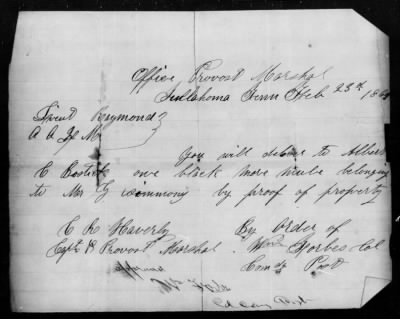 Office Provost Marshal
Tullahoma Tenn Feb 23rd 186
Lieut Raymond
A A Q M
You will deliver to Albert
C Bostick one black mare mule belonging
to Mrs by proof of property
C R Haverly By Order of
Capt & Provost Marshal Wm Forbes Col
Comdg Post
approved
Wm
Col Comg Post